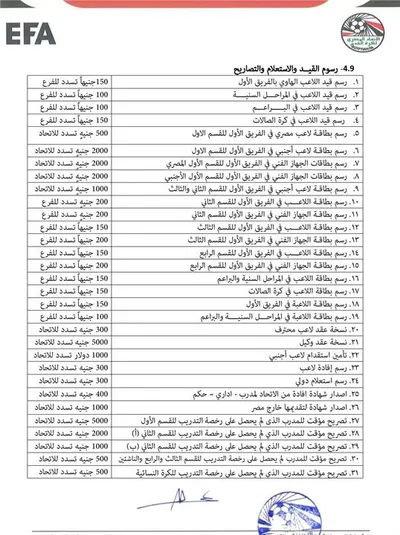 EFA
الاتحاد المصري
لكرة القدم
4.9- رسوم القيـد والاستعلام والتصاريح
١. رسم قيد اللاعب الهاوي بالفريق الأول 150جنيهاً تسدد للفرع
٢. رسم قيد اللاعب في المراحـل السـنيـة 100 جنيهاً تسدد للفرع
٣. رسم قيد اللاعب في البـراعـم 100 جنيهاً تسدد للفرع
٤. رسم قيد اللاعب في كرة الصالات 150 جنيهاً تسدد للفرع
٥. رسم بطاقة لاعب مصري في الفريق الأول للقسم الاول 500 جنيهٍ تسدد للاتحاد
٦. رسم بطاقة لاعب أجنبي في الفريق الأول للقسم الاول 2000 جنيهٍ تسدد للاتحاد
٧. رسم بطاقات الجهاز الفني في الفريق الأول للقسم الأول المصري 2000 جنيهٍ تسدد للاتحاد
٨. رسم بطاقات الجهاز الفني في الفريق الأول للقسم الأول الأجنبي 2000 جنيهٍ تسدد للاتحاد
٩. رسم بطاقة لاعب أجنبي في الفريق الأول للقسم الثاني والثالث 1000 جنيهٍ تسدد للاتحاد
١٠. رسم بطاقة اللاعــب في الفريق الأول للقسم الثاني 200 جنيهٍ تسدد للفرع
١١. رسم بطاقة الجهاز الفني في الفريق الأول للقسم الثاني 200 جنيهٍ تسدد للفرع
١٢. رسم بطاقة اللاعــب في الفريق الأول للقسم الثالث 150 جنيهاً تسدد للفرع
١٣. رسم بطاقة الجهاز الفني في الفريق الأول للقسم الثالث 200 جنيهاً تسدد للفرع
١٤. رسم بطاقة اللاعــب في الفريق الأول للقسم الرابع 150 جنيهاً تسدد للفرع
١٥. رسم بطاقة الجهاز الفني في الفريق الأول للقسم الرابع 200 جنيهاً تسدد للفرع
١٦. رسم بطاقة اللاعب في المراحل السنية والبراعم 150 جنيهاً تسدد للفرع
١٧. رسم بطاقة اللاعب في كرة الصالات 150 جنيهاً تسدد للفرع
١٨. رسم بطاقة اللاعبة في الفريق الأول 150 جنيهاً تسدد للفرع
١٩. رسم بطاقة اللاعبة في المراحل السنيـة والبراعم 100 جنيهاً تسدد للفرع
٢٠. نسخة عقد لاعب محترف 300 جنيه تسدد للاتحاد
٢١. نسخة عقد وكيل 5000 جنيه تسدد للاتحاد
٢٢. تأمين استقدام لاعب أجنبي 1000 دولار تسدد للاتحاد
٢٣. رسم إفادة لاعب 300 جنيه تسدد للاتحاد
٢٤. رسم استعلام دولي 150 جنيه تسدد للاتحاد
٢٥. اصدار شهادة افادة من الاتحاد لمدرب - اداري – حكم 400 جنيه تسدد للاتحاد
٢٦. اصدار شهادة لتقديمها خارج مصر 1000 جنيه تسدد للاتحاد
٢٧. تصريح مؤقت للمدرب الذي لم يحصل على رخصة التدريب للقسم الأول 5000 جنيه تسدد للاتحاد
٢٨. تصريح مؤقت للمدرب الذي لم يحصل على رخصة التدريب للقسم الثاني (أ) 2000 جنيه تسدد للاتحاد
٢٩. تصريح مؤقت للمدرب الذي لم يحصل على رخصة التدريب للقسم الثاني (ب) 1000 جنيه تسدد للاتحاد
٣٠. تصريح مؤقت للمدرب الذي لم يحصل على رخصة التدريب للقسم الثالث والرابع والناشئين 500 جنيه تسدد للاتحاد
٣١. تصريح مؤقت للمدرب الذي لم يحصل على رخصة التدريب للكرة النسائية 500 جنيه تسدد للاتحاد